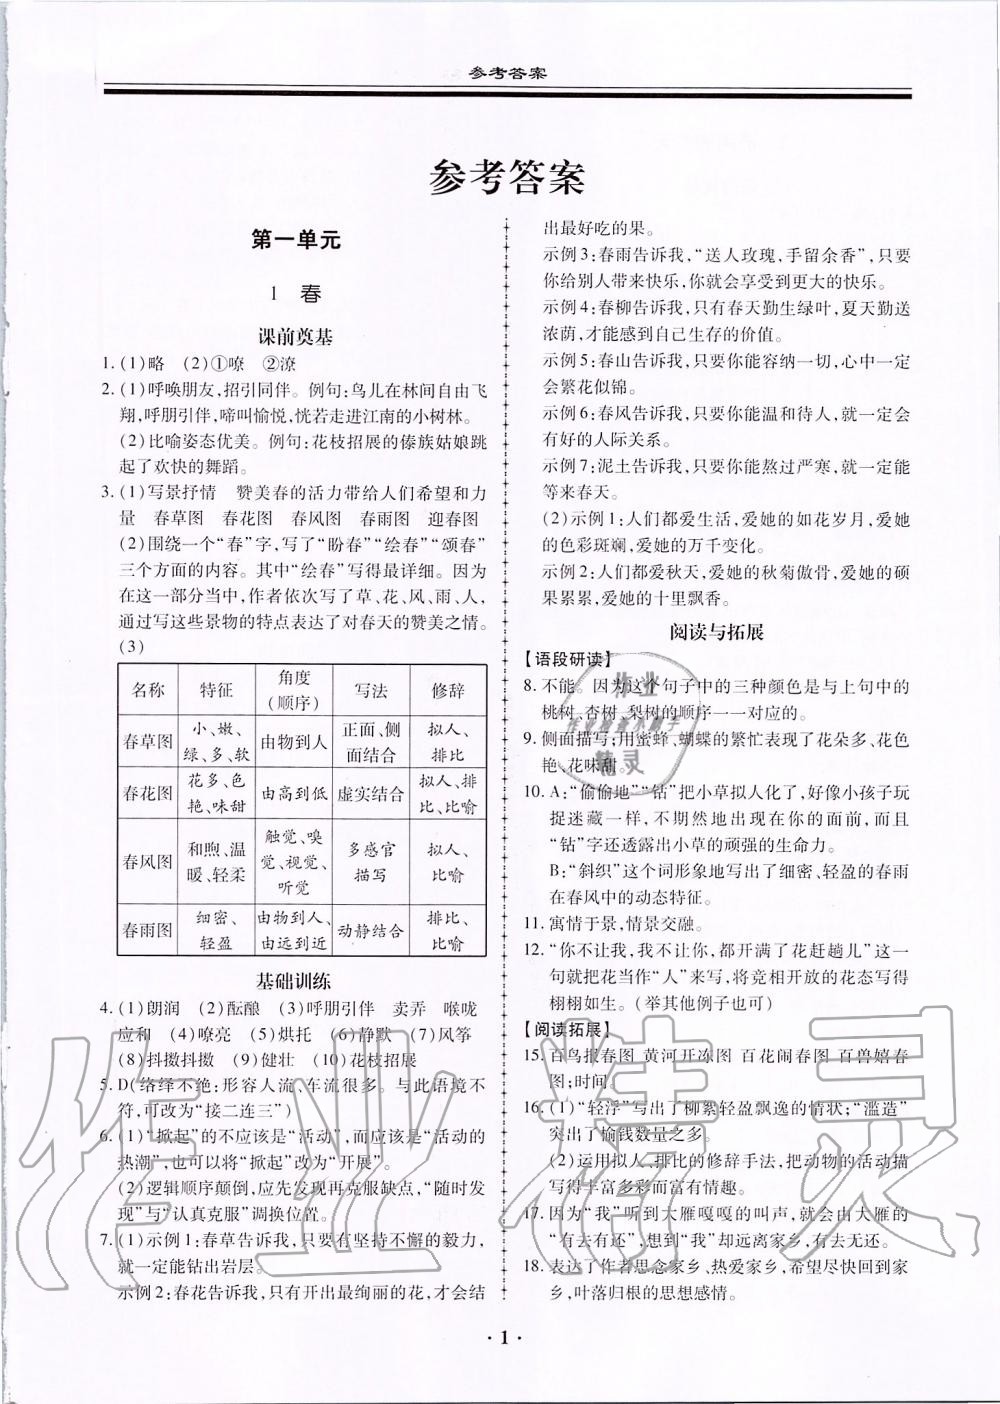 参考答案
参考答案
第一单元
1 春
课前奠基
1.(1)略 (2)①嘹 ②潦
2.(1)呼唤朋友,招引同伴。例句:鸟儿在林间自由飞
翔,呼朋引伴,啼叫愉悦,恍若走进江南的小树林。
(2)比喻姿态优美。例句:花枝招展的傣族姑娘跳
起了欢快的舞蹈。
3.(1)写景抒情 赞美春的活力带给人们希望和力
量 春草图 春花图 春风图 春雨图 迎春图
(2)围绕一个“春”字,写了“盼春”“绘春”“颂春”
三个方面的内容。其中“绘春”写得最详细。因为
在这一部分当中,作者依次写了草、花、风、雨、人,
通过写这些景物的特点表达了对春天的赞美之情。
(3)
名称 特征 角度(顺序) 写法 修辞
春草图 小、嫩、绿、多、软 由物到人 正面、侧面结合 拟人、排比
春花图 花多、色艳、味甜 由高到低 虚实结合 拟人、排比、比喻
春风图 和煦、温暖、轻柔 触觉、嗅觉、视觉、听觉 多感官描写 拟人、比喻
春雨图 细密、轻盈 由物到人、由远到近 动静结合 排比、比喻
基础训练
4.(1)朗润 (2)酝酿 (3)呼朋引伴 卖弄 喉咙
应和 (4)嘹亮 (5)烘托 (6)静默 (7)风筝
(8)抖擞抖擞 (9)健壮 (10)花枝招展
5.D(络绎不绝:形容人流、车流很多。与此语境不
符,可改为“接二连三”)
6.(1)“掀起”的不应该是“活动”,而应该是“活动的
热潮”,也可以将“掀起”改为“开展”。
(2)逻辑顺序颠倒,应先发现再克服缺点,“随时发
现”与“认真克服”调换位置。
7.(1)示例1:春草告诉我,只要有坚持不懈的毅力,
就一定能钻出岩层。
示例2:春花告诉我,只有开出最绚丽的花,才会结
出最好吃的果。
示例3:春雨告诉我,“送人玫瑰,手留余香”,只要
你给别人带来快乐,你就会享受到更大的快乐。
示例4:春柳告诉我,只有春天勤生绿叶,夏天勤送
浓荫,才能感到自己生存的价值。
示例5:春山告诉我,只要你能容纳一切,心中一定
会繁花似锦。
示例6:春风告诉我,只要你能温和待人,就一定会
有好的人际关系。
示例7:泥土告诉我,只要你能熬过严寒,就一定能
等来春天。
(2)示例1:人们都爱生活,爱她的如花岁月,爱她
的色彩斑斓,爱她的万千变化。
示例2:人们都爱秋天,爱她的秋菊傲骨,爱她的硕
果累累,爱她的十里飘香。
阅读与拓展
【语段研读】
8.不能。因为这个句子中的三种颜色是与上句中的
桃树、杏树、梨树的顺序一一对应的。
9.侧面描写;用蜜蜂、蝴蝶的繁忙表现了花朵多、花色
艳、花味甜。
10.A:“偷偷地”“钻”把小草拟人化了,好像小孩子玩
捉迷藏一样,不期然地出现在你的面前,而且
“钻”字还透露出小草的顽强的生命力。
B:“斜织”这个词形象地写出了细密、轻盈的春雨
在春风中的动态特征。
11.寓情于景,情景交融。
12.“你不让我,我不让你,都开满了花赶趟儿”这一
句就把花当作“人”来写,将竞相开放的花态写得
栩栩如生。(举其他例子也可)
【阅读拓展】
15.百鸟报春图 黄河开冻图 百花闹春图 百兽嬉春
图;时间。
16.(1)“轻浮”写出了柳絮轻盈飘逸的情状;“滥造”
突出了榆钱数量之多。
(2)运用拟人、排比的修辞手法,把动物的活动描
写得丰富多彩而富有情趣。
17.因为“我”听到大雁嘎嘎的叫声,就会由大雁的
“有去有还”,想到“我”却远离家乡,有去无还。
18.表达了作者思念家乡、热爱家乡,希望尽快回到家
乡,叶落归根的思想感情。
·1·
作业精灵
作业
精灵